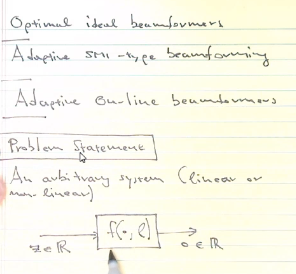 Optimal ideal beamformers
Adaptive SMI-type beamforming
Adaptive on-line beamformers
Problem Statement
An arbitrary system (linear or
non-linear)
f(·, l)
x ∈ ℝ
o ∈ ℝ